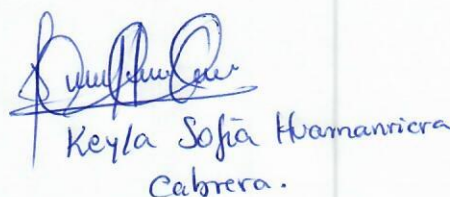 Keyla Sofia Huamanricra
Cabrera.